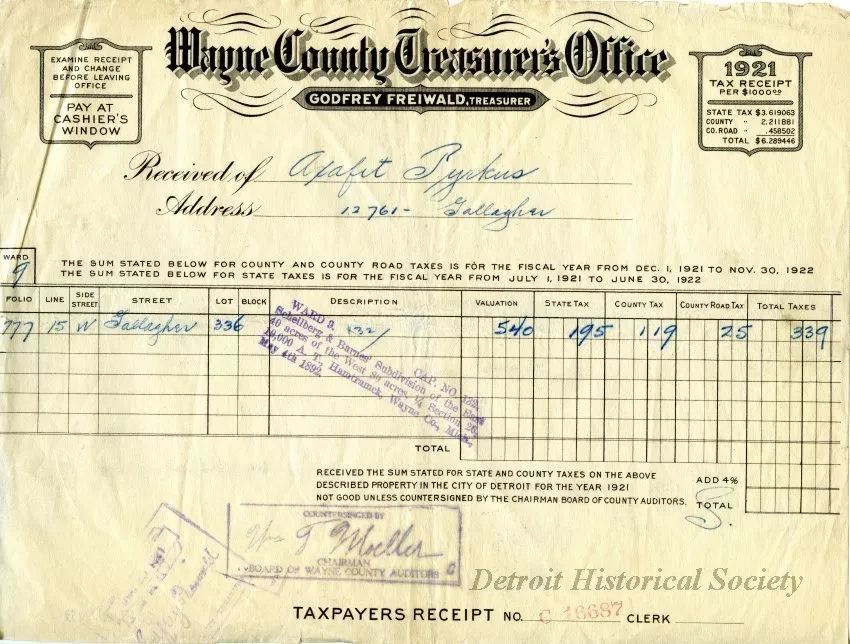 Wayne County Treasurer's Office
GODFREY FREIWALD, TREASURER
EXAMINE RECEIPT
AND CHANGE
BEFORE LEAVING
OFFICE
PAY AT
CASHIER'S
WINDOW
1921
TAX RECEIPT
PER $1000.00
STATE TAX $3.619063
COUNTY " 2.211881
CO. ROAD " .458502
TOTAL $6.289446
Received of Axafit Pyrkus
Address 12761- Gallagher
WARD
9
THE SUM STATED BELOW FOR COUNTY AND COUNTY ROAD TAXES IS FOR THE FISCAL YEAR FROM DEC. 1, 1921 TO NOV. 30, 1922
THE SUM STATED BELOW FOR STATE TAXES IS FOR THE FISCAL YEAR FROM JULY 1, 1921 TO JUNE 30, 1922
FOLIO LINE SIDE STREET STREET LOT BLOCK DESCRIPTION VALUATION STATE TAX COUNTY TAX COUNTY ROAD TAX TOTAL TAXES
777 15 W Gallagher 336 540 195 119 25 339
WARD 9. CAP. NO.
Schellberg & Barnes' Subdivision of the East
40 acres of the West 80 acres, 1/4 Section 20,
10,000 A. T. Hamtramck, Wayne Co., Mich.
May 4th 1892.
TOTAL
RECEIVED THE SUM STATED FOR STATE AND COUNTY TAXES ON THE ABOVE
DESCRIBED PROPERTY IN THE CITY OF DETROIT FOR THE YEAR 1921
NOT GOOD UNLESS COUNTERSIGNED BY THE CHAIRMAN BOARD OF COUNTY AUDITORS.
ADD 4%
TOTAL
COUNTERSIGNED BY
Wm T Moeller
CHAIRMAN
BOARD OF WAYNE COUNTY AUDITORS
Detroit Historical Society
TAXPAYERS RECEIPT NO. C 16687 CLERK